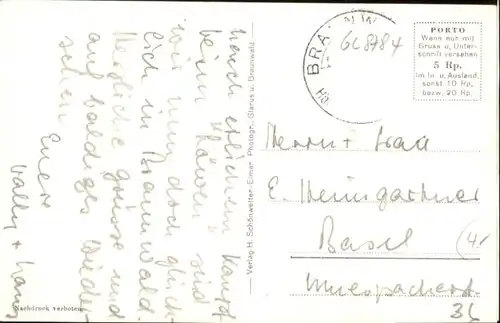 nach etlichem Kampf
beim "Löwen" sind
wir nun doch glück-
lich in Braunwald.
Herzliche Grüsse und
auf baldiges Wieder-
sehen
Eure
Wally + Hans
Nachdruck verboten
Verlag H. Schönwetter-Elmer, Photogr. Glarus u. Braunwald
BRA
668784
PORTO
Wenn nur mit
Gruss u. Unter-
schrift versehen
5 Rp.
im In. u. Ausland,
sonst 10 Rp.
bezw. 20 Rp.
Herrn + Frau
E. Heimgartner
Basel
36